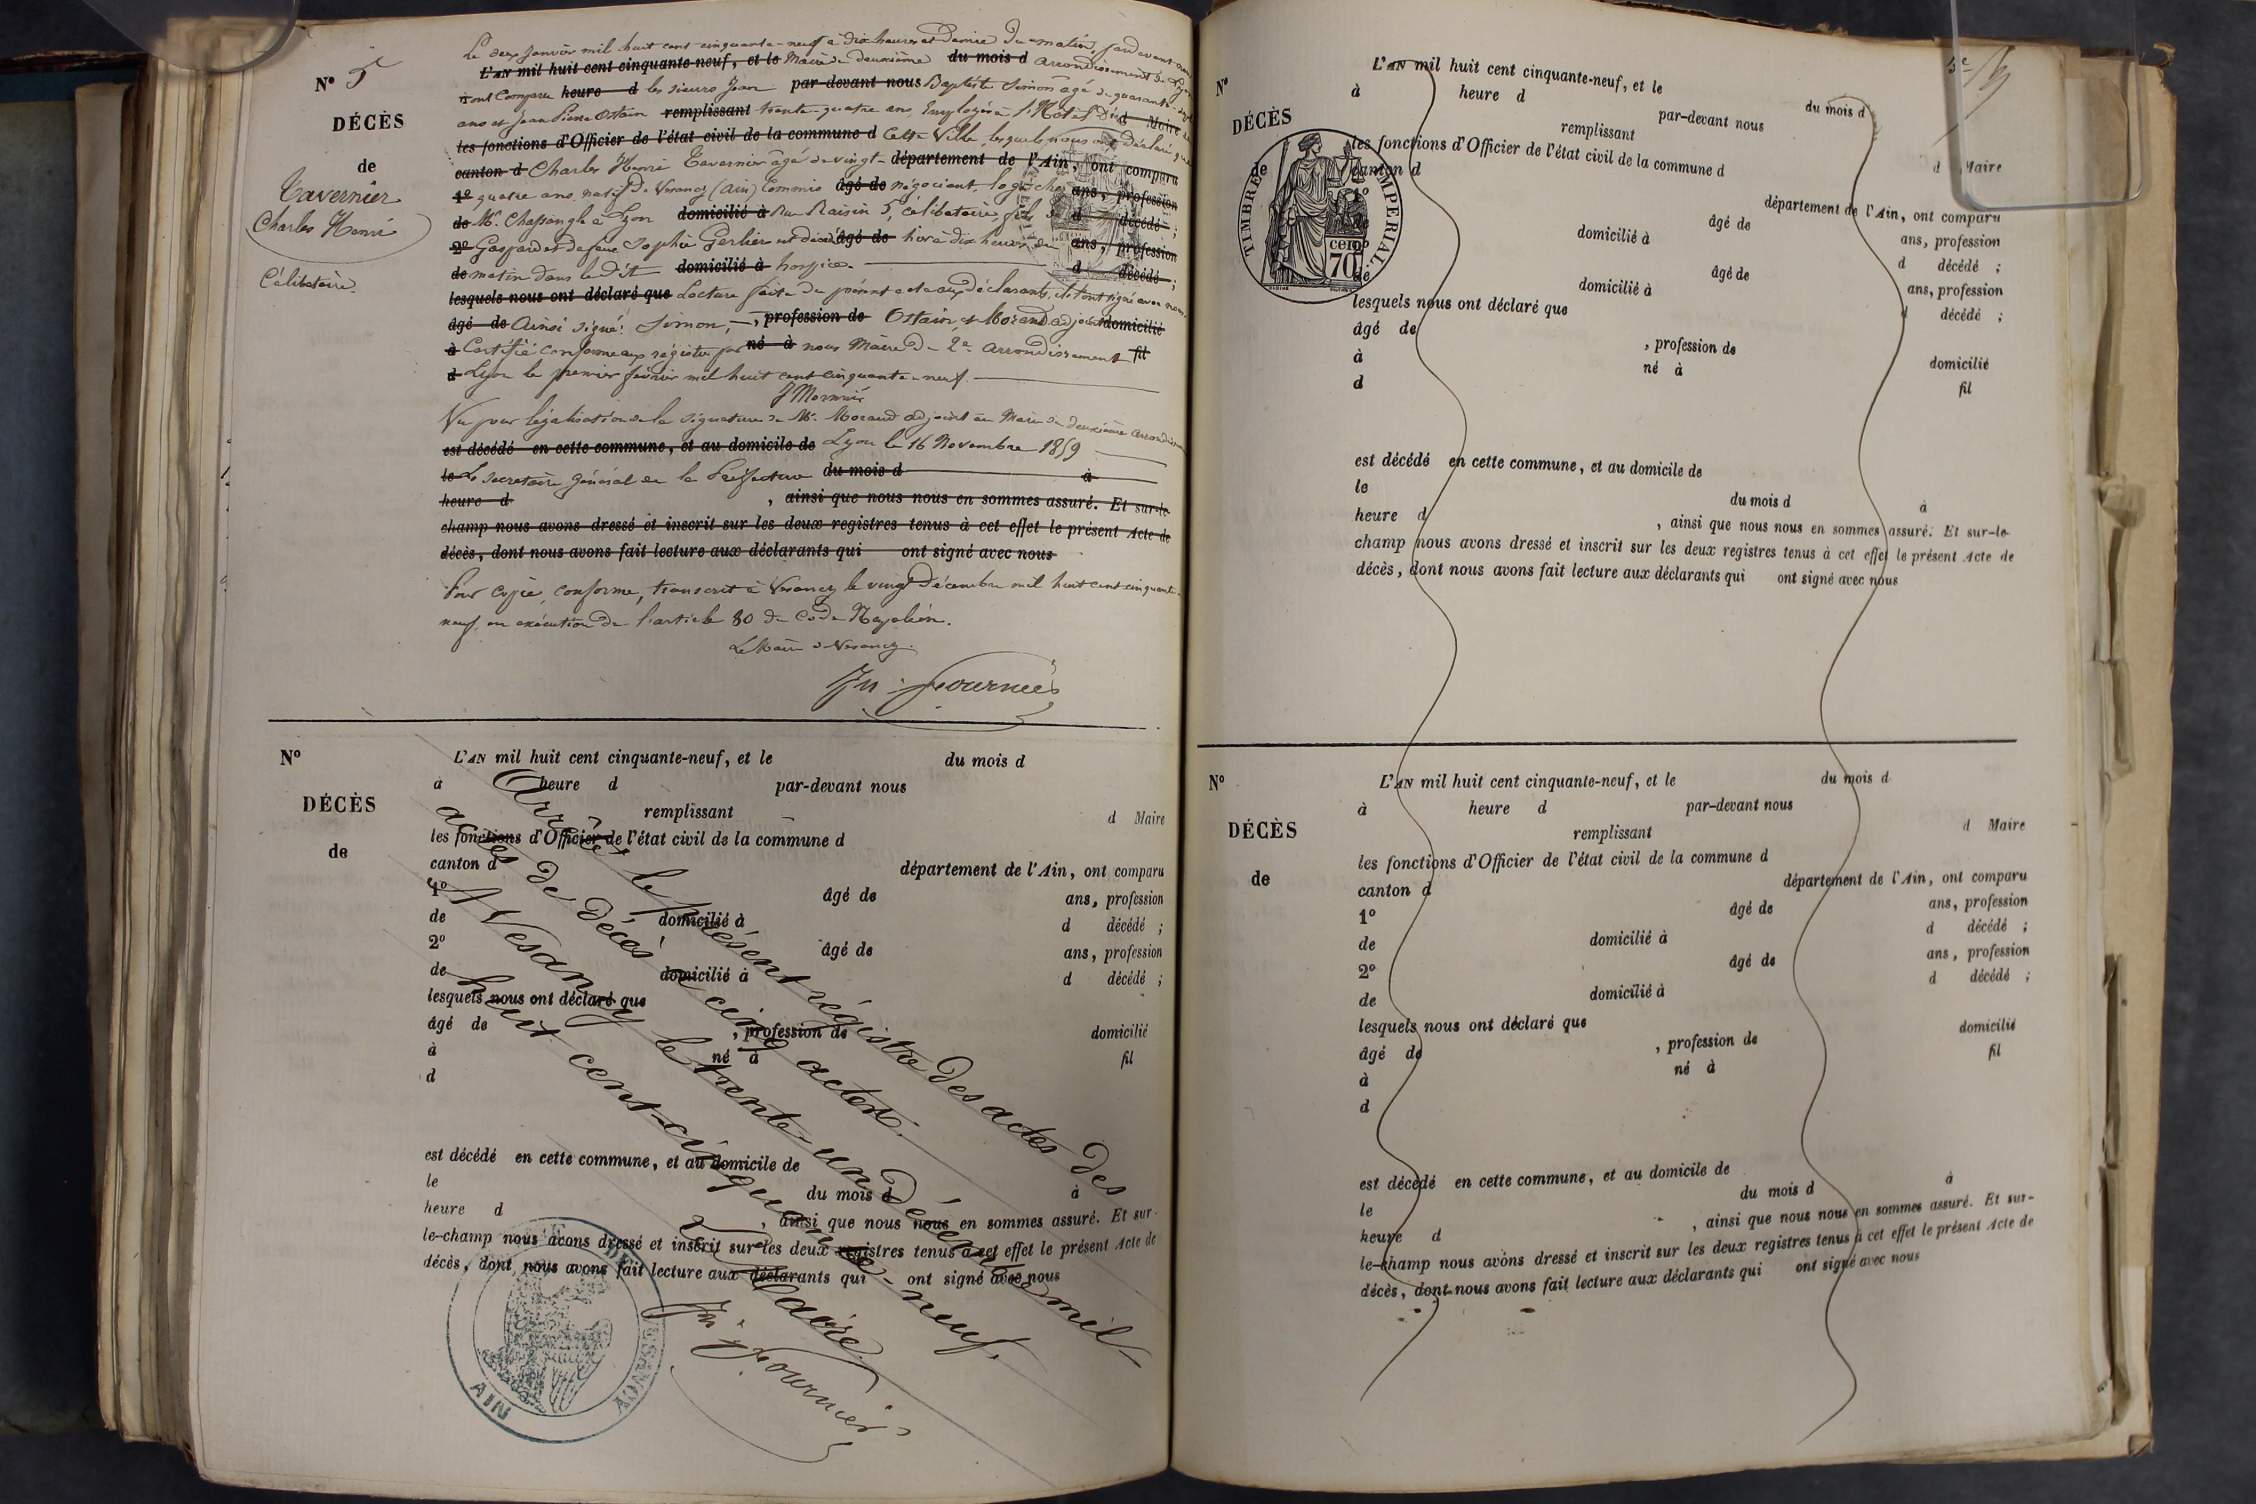 N° 5
DÉCÈS
de
Tavernier
Charles Henri
Célibataire.
Le deux Janvier mil huit cent cinquante-neuf à dix heures et demie du matin, pardevant nous
L'AN mil huit cent cinquante-neuf, et le Maire du deuxième du mois d arrondissement de Lyon
sont comparu heure d les sieurs Jean par-devant nous Baptiste Simon âgé de quarante-sept
ans et Jean Pierre Ostain remplissant trente-quatre ans, Employés à l'Hôtel Dieu d Maire
les fonctions d'Officier de l'état civil de la commune d Cette Ville, lesquels nous ont déclaré que
canton d Charles Henri Tavernier âgé de vingt- département de l'Ain, ont comparu
1° quatre ans, natif de Vesancy (Ain) Commis âgé de négociant, logé chez ans, profession
de Mr. Chassangle à Lyon domicilié à Rue Raisin 5, célibataire, fils de d décédé ;
2° Gaspard et de feue Sophie Gerlier est décédé âgé de hier à dix heures du ans, profession
de matin dans le dit domicilié à hospice. d décédé ;
lesquels nous ont déclaré que Lecture faite du présent acte aux déclarants, ils l'ont signé avec nous
âgé de Ainsi signé: Simon, , profession de Ostain, et Morand adjoint domicilié
à Certifié conforme aux régistres par né à nous Maire du 2e. arrondissement fil
d Lyon le premier février mil huit cent cinquante-neuf.
Vu pour légalisation de la signature de Mr. Morand adjoint au Maire du deuxième arrondissement
est décédé en cette commune, et au domicile de Lyon le 16 Novembre 1859
le Le Secretaire Général de la Préfecture du mois d à
heure d , ainsi que nous nous en sommes assuré. Et sur-le-
champ nous avons dressé et inscrit sur les deux registres tenus à cet effet le présent Acte de
décès, dont nous avons fait lecture aux déclarants qui ont signé avec nous
Pour copie conforme, transcrit à Vesancy le vingt Décembre mil huit cent cinquante-
neuf en exécution de l'article 80 du Code Napoléon.
Le Maire de Vesancy.
Jn. Fournier
N°
DÉCÈS
de
L'AN mil huit cent cinquante-neuf, et le du mois d
à heure d par-devant nous
remplissant d Maire
les fonctions d'Officier de l'état civil de la commune d
canton d département de l'Ain, ont comparu
1° âgé de ans, profession
de domicilié à d décédé ;
2° âgé de ans, profession
de domicilié à d décédé ;
lesquels nous ont déclaré que
âgé de , profession de domicilié
à né à fil
d
est décédé en cette commune, et au domicile de
le du mois d à
heure d , ainsi que nous nous en sommes assuré. Et sur-
le-champ nous avons dressé et inscrit sur les deux registres tenus à cet effet le présent Acte de
décès, dont nous avons fait lecture aux déclarants qui ont signé avec nous
Arrêté le présent régistre des actes des
actes de décès à cinq actes.
A Vesancy le trente-un Décembre mil-
huit cent-cinquante-neuf.
Le Maire
Jn. Fournier
AIN
N°
DÉCÈS
de
TIMBRE IMPERIAL
70 cent
L'AN mil huit cent cinquante-neuf, et le du mois d
à heure d par-devant nous
remplissant d Maire
les fonctions d'Officier de l'état civil de la commune d
canton d département de l'Ain, ont comparu
1° âgé de ans, profession
de domicilié à d décédé ;
2° âgé de ans, profession
de domicilié à d décédé ;
lesquels nous ont déclaré que
âgé de , profession de domicilié
à né à fil
d
est décédé en cette commune, et au domicile de
le du mois d à
heure d , ainsi que nous nous en sommes assuré. Et sur-le-
champ nous avons dressé et inscrit sur les deux registres tenus à cet effet le présent Acte de
décès, dont nous avons fait lecture aux déclarants qui ont signé avec nous
N°
DÉCÈS
de
L'AN mil huit cent cinquante-neuf, et le du mois d
à heure d par-devant nous
remplissant d Maire
les fonctions d'Officier de l'état civil de la commune d
canton d département de l'Ain, ont comparu
1° âgé de ans, profession
de domicilié à d décédé ;
2° âgé de ans, profession
de domicilié à d décédé ;
lesquels nous ont déclaré que
âgé de , profession de domicilié
à né à fil
d
est décédé en cette commune, et au domicile de
le du mois d à
heure d , ainsi que nous nous en sommes assuré. Et sur-
le-champ nous avons dressé et inscrit sur les deux registres tenus à cet effet le présent Acte de
décès, dont nous avons fait lecture aux déclarants qui ont signé avec nous